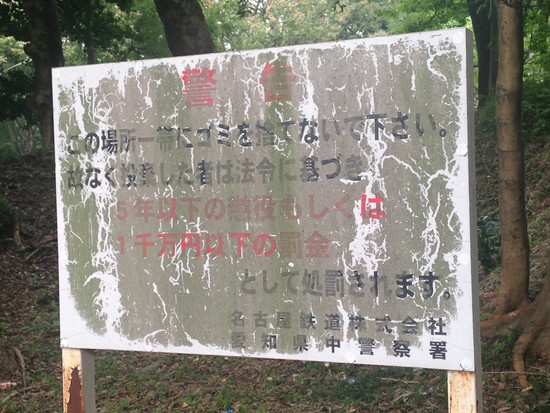 警告
この場所一帯にゴミを捨てないで下さい。
故なく投棄した者は法令に基づき
5年以下の懲役もしくは
1千万円以下の罰金
として処罰されます。
名古屋鉄道株式会社
愛知県中警察署